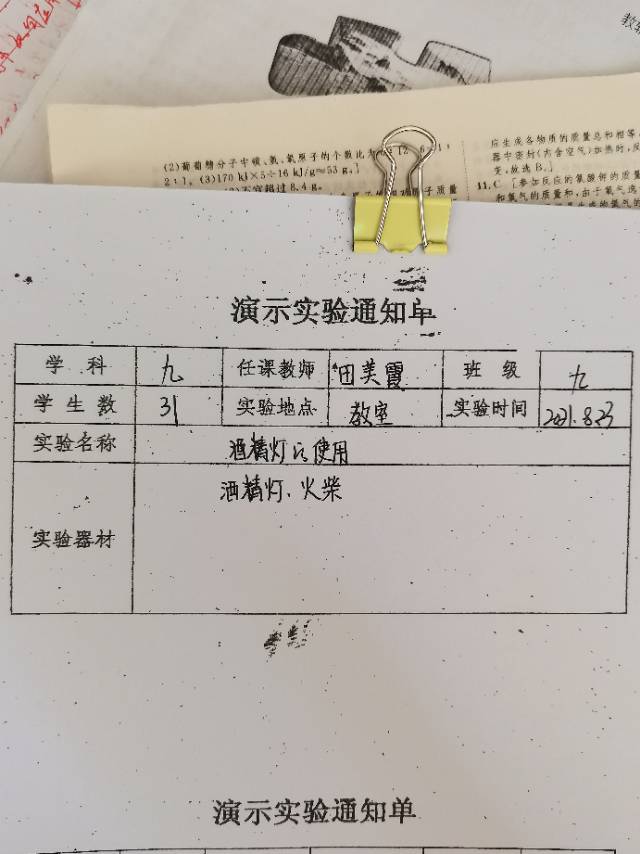 教辅
(2)葡萄糖分子中碳、氢、氧原子的个数比为
2:1。(3)170 kJ×5÷16 kJ/g≈53 g。]
不宜超过 8.4 g。
应生成各物质的质量总和相等
器中密封(内含空气)加热时,反
变,故选 B。
11.C [参加反应的氯酸钾的质量
和氧气的质量和,由于氧气逸
演示实验通知单
学科 九 任课教师 田美霞 班级 九
学生数 31 实验地点 教室 实验时间 2021.8.23
实验名称 酒精灯的使用
实验器材 酒精灯、火柴
演示实验通知单